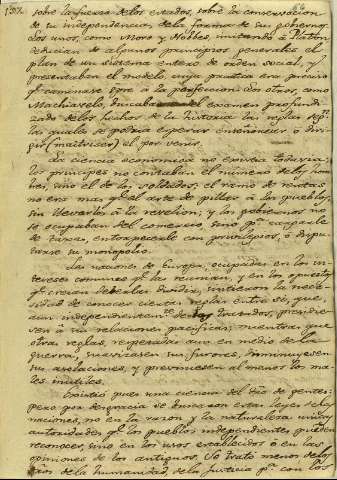 137.
sobre la fuerza de los estados, sobre la conservacion
de su independencia, de la forma de su gobierno.
Los unos, como Moro y Hobbes imitando á Platon
dedician de algunos principios generales el
plan de un sistema entero de orden social, y
presentaban el modelo, cuya practica era preciso
los otros, como
Machiavelo, buscaban en el examen profundi-
zado de los hechos de la historia las reglas segn.
las quales se podria esperar enseñorear ó diri-
gir (maitrisser) el por venir.
La ciencia economica no existia todavia;
los principes no contaban el numero de los hom-
bres, sino el de los soldados; el ramo de rentas
no era mas ql. el arte de pillar á los pueblos,
sin llevarlos á la revelion; y los gobiernos no
se ocupaban del comercio, sino pa. cargarle
de tasas, entorpecerle con privilegios, ó dispu-
tarse su monopolio.
Las naciones de Europa, ocupadas en los in-
tereses comunes qe. las reunian, y en los opuestos
qe. creian deberlas dividir, sintieron la nece-
sidad de conocer ciertas reglas entre sí, que,
aun independientemte. de los tratados, presidie-
sen á sus relaciones pacificas; mientras que
otras reglas, respetadas aun en medio de la
guerra, suavizasen sus furores, disminuyesen
sus asolaciones, y previniesen al menos los ma-
les inutiles.
Existió pues una ciencia del dro. de gentes:
pero por desgracia se buscaron estas leyes de las
naciones, no en la razon y la naturaleza unicas
autoridades qe. los pueblos independientes pueden
reconocer, sino en los usos establecidos ó en las
opiniones de los antiguos. Se trató menos de los
dros. de la humanidad, de la justicia pa. con los